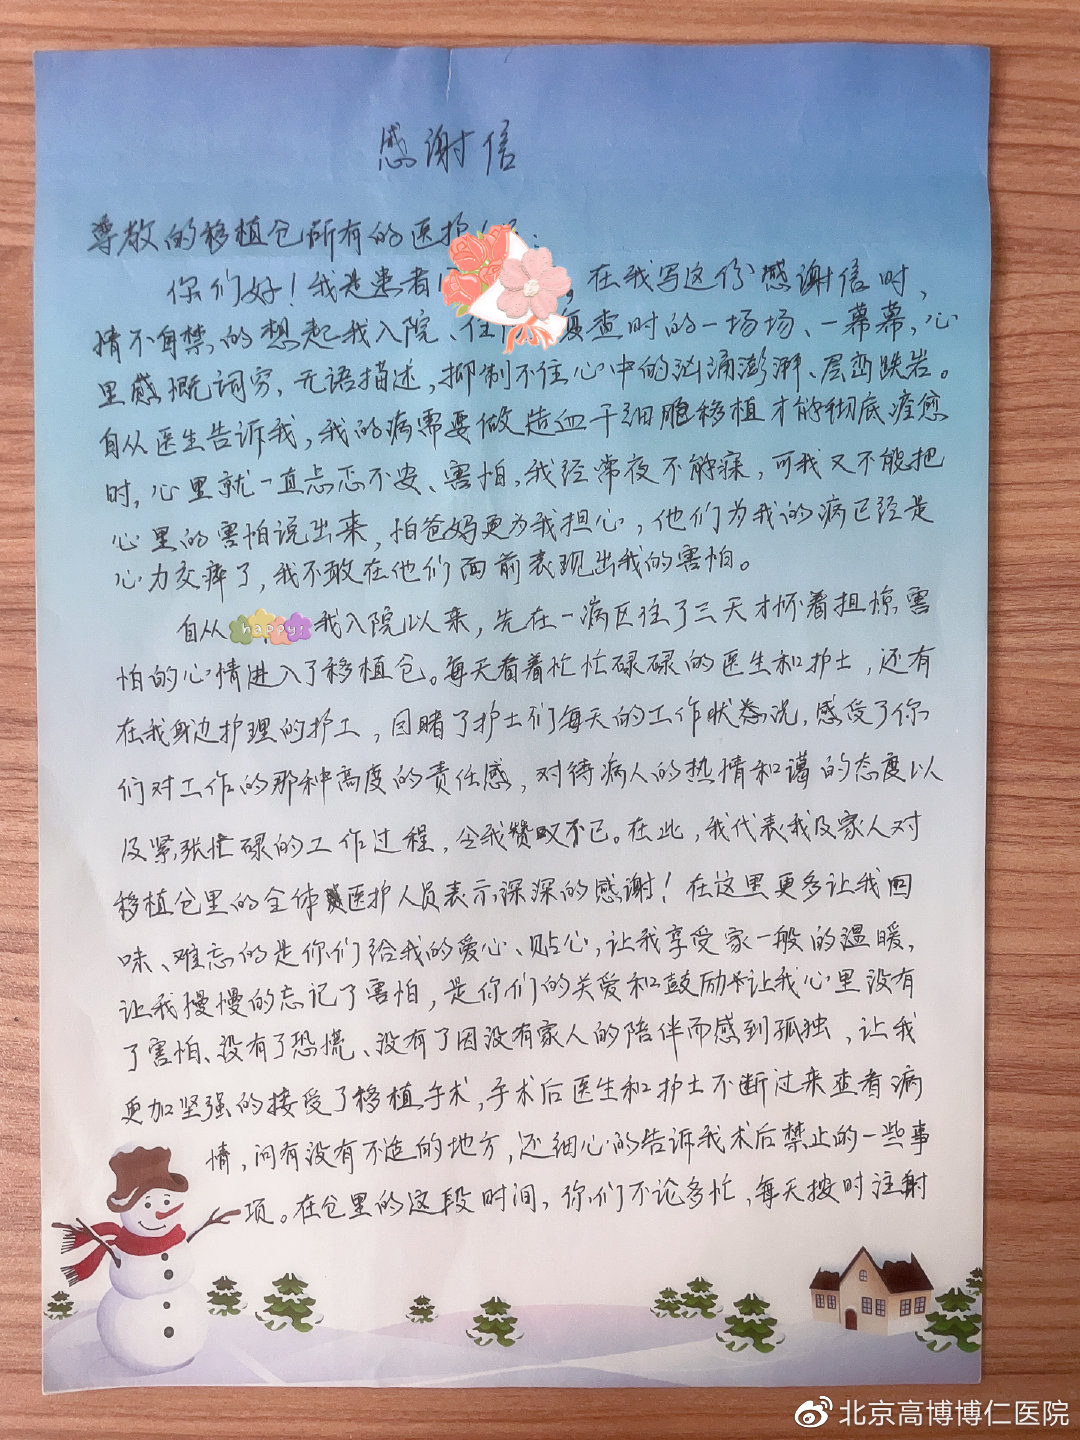 感谢信
尊敬的移植仓所有的医护
你们好！我是患者 ，在我写这份感谢信时，
情不自禁的想起我入院、住 复查时的一场场、一幕幕，心
里感慨词穷，无语描述，抑制不住心中的汹涌澎湃、层峦跌岩。
自从医生告诉我，我的病需要做造血干细胞移植才能彻底痊愈
时，心里就一直忐忑不安、害怕，我经常夜不能寐，可我又不能把
心里的害怕说出来，怕爸妈更为我担心，他们为我的病已经是
心力交瘁了，我不敢在他们面前表现出我的害怕。
自从 happy! 我入院以来，先在一病区住了三天才怀着担惊害
怕的心情进入了移植仓。每天看着忙忙碌碌的医生和护士，还有
在我身边护理的护工，目睹了护士们每天的工作状态况，感受了你
们对工作的那种高度的责任感，对待病人的热情和蔼的态度以
及紧张忙碌的工作过程，令我赞叹不已。在此，我代表我及家人对
移植仓里的全体医护人员表示深深的感谢！在这里更多让我回
味、难忘的是你们给我的爱心、贴心，让我享受家一般的温暖，
让我慢慢的忘记了害怕，是你们的关爱和鼓励让我心里没有
了害怕、没有了恐慌、没有了因没有家人的陪伴而感到孤独，让我
更加坚强的接受了移植手术，手术后医生和护士不断过来查看病
情，问有没有不适的地方，还细心的告诉我术后禁止的一些事
项。在仓里的这段时间，你们不论多忙，每天按时注射
北京高博博仁医院